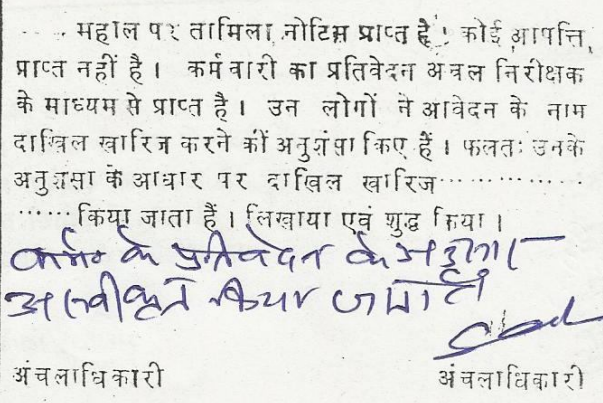 ..... महाल पर तामिला नोटिस प्राप्त है । कोई आपत्ति
प्राप्त नहीं है । कर्मचारी का प्रतिवेदन अचल निरीक्षक
के माध्यम से प्राप्त है । उन लोगों ने आवेदन के नाम
दाखिल खारिज करने की अनुशंसा किए हैं । फलतः उनके
अनुशंसा के आधार पर दाखिल खारिज ..............
...... किया जाता हैं । लिखाया एवं शुद्ध किया ।
के प्रतिवेदन के
अस्वीकृत किया जाता है
अंचलाधिकारी अंचलाधिकारी